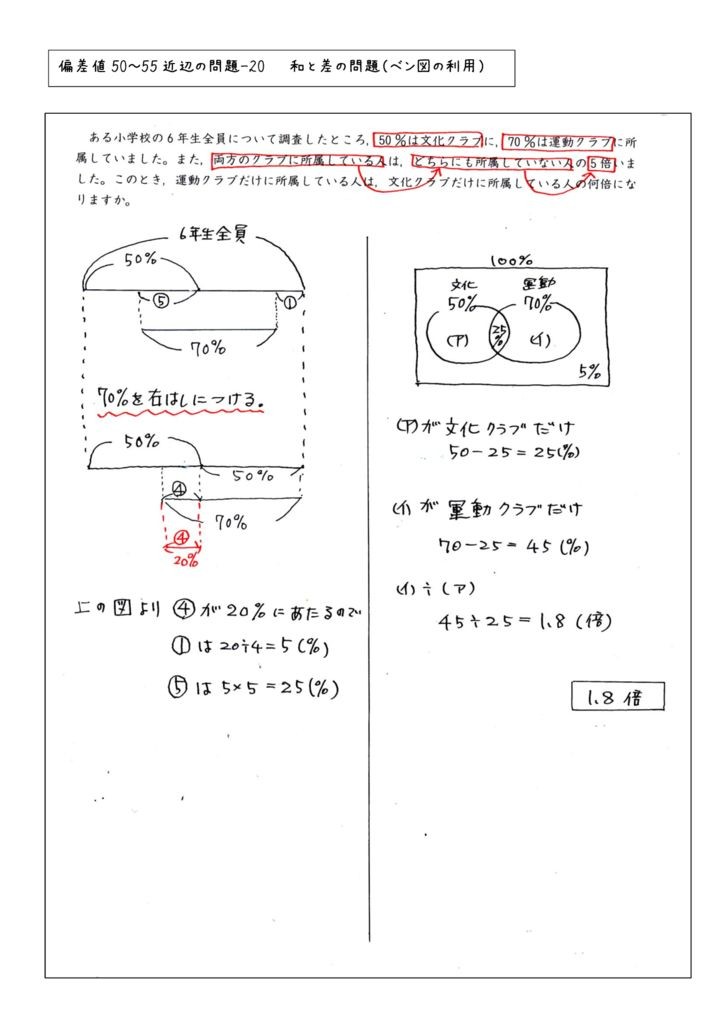 偏差値50～55近辺の問題-20　和と差の問題(ベン図の利用)
ある小学校の6年生全員について調査したところ，50％は文化クラブに，70％は運動クラブに所
属していました。また，両方のクラブに所属している人は，どちらにも所属していない人の5倍いま
した。このとき，運動クラブだけに所属している人は，文化クラブだけに所属している人の何倍にな
りますか。
6年生全員
50%
⑤ ①
70%
70%を右はしにつける.
50%
50%
④
70%
④
20%
上の図より ④が20%にあたるので
①は20÷4=5(%)
⑤は5×5=25(%)
100%
文化 運動
50% 70%
(ア) 25% (イ)
5%
(ア)が文化クラブだけ
50-25=25(%)
(イ)が運動クラブだけ
70-25=45(%)
(イ)÷(ア)
45÷25=1.8(倍)
1.8倍